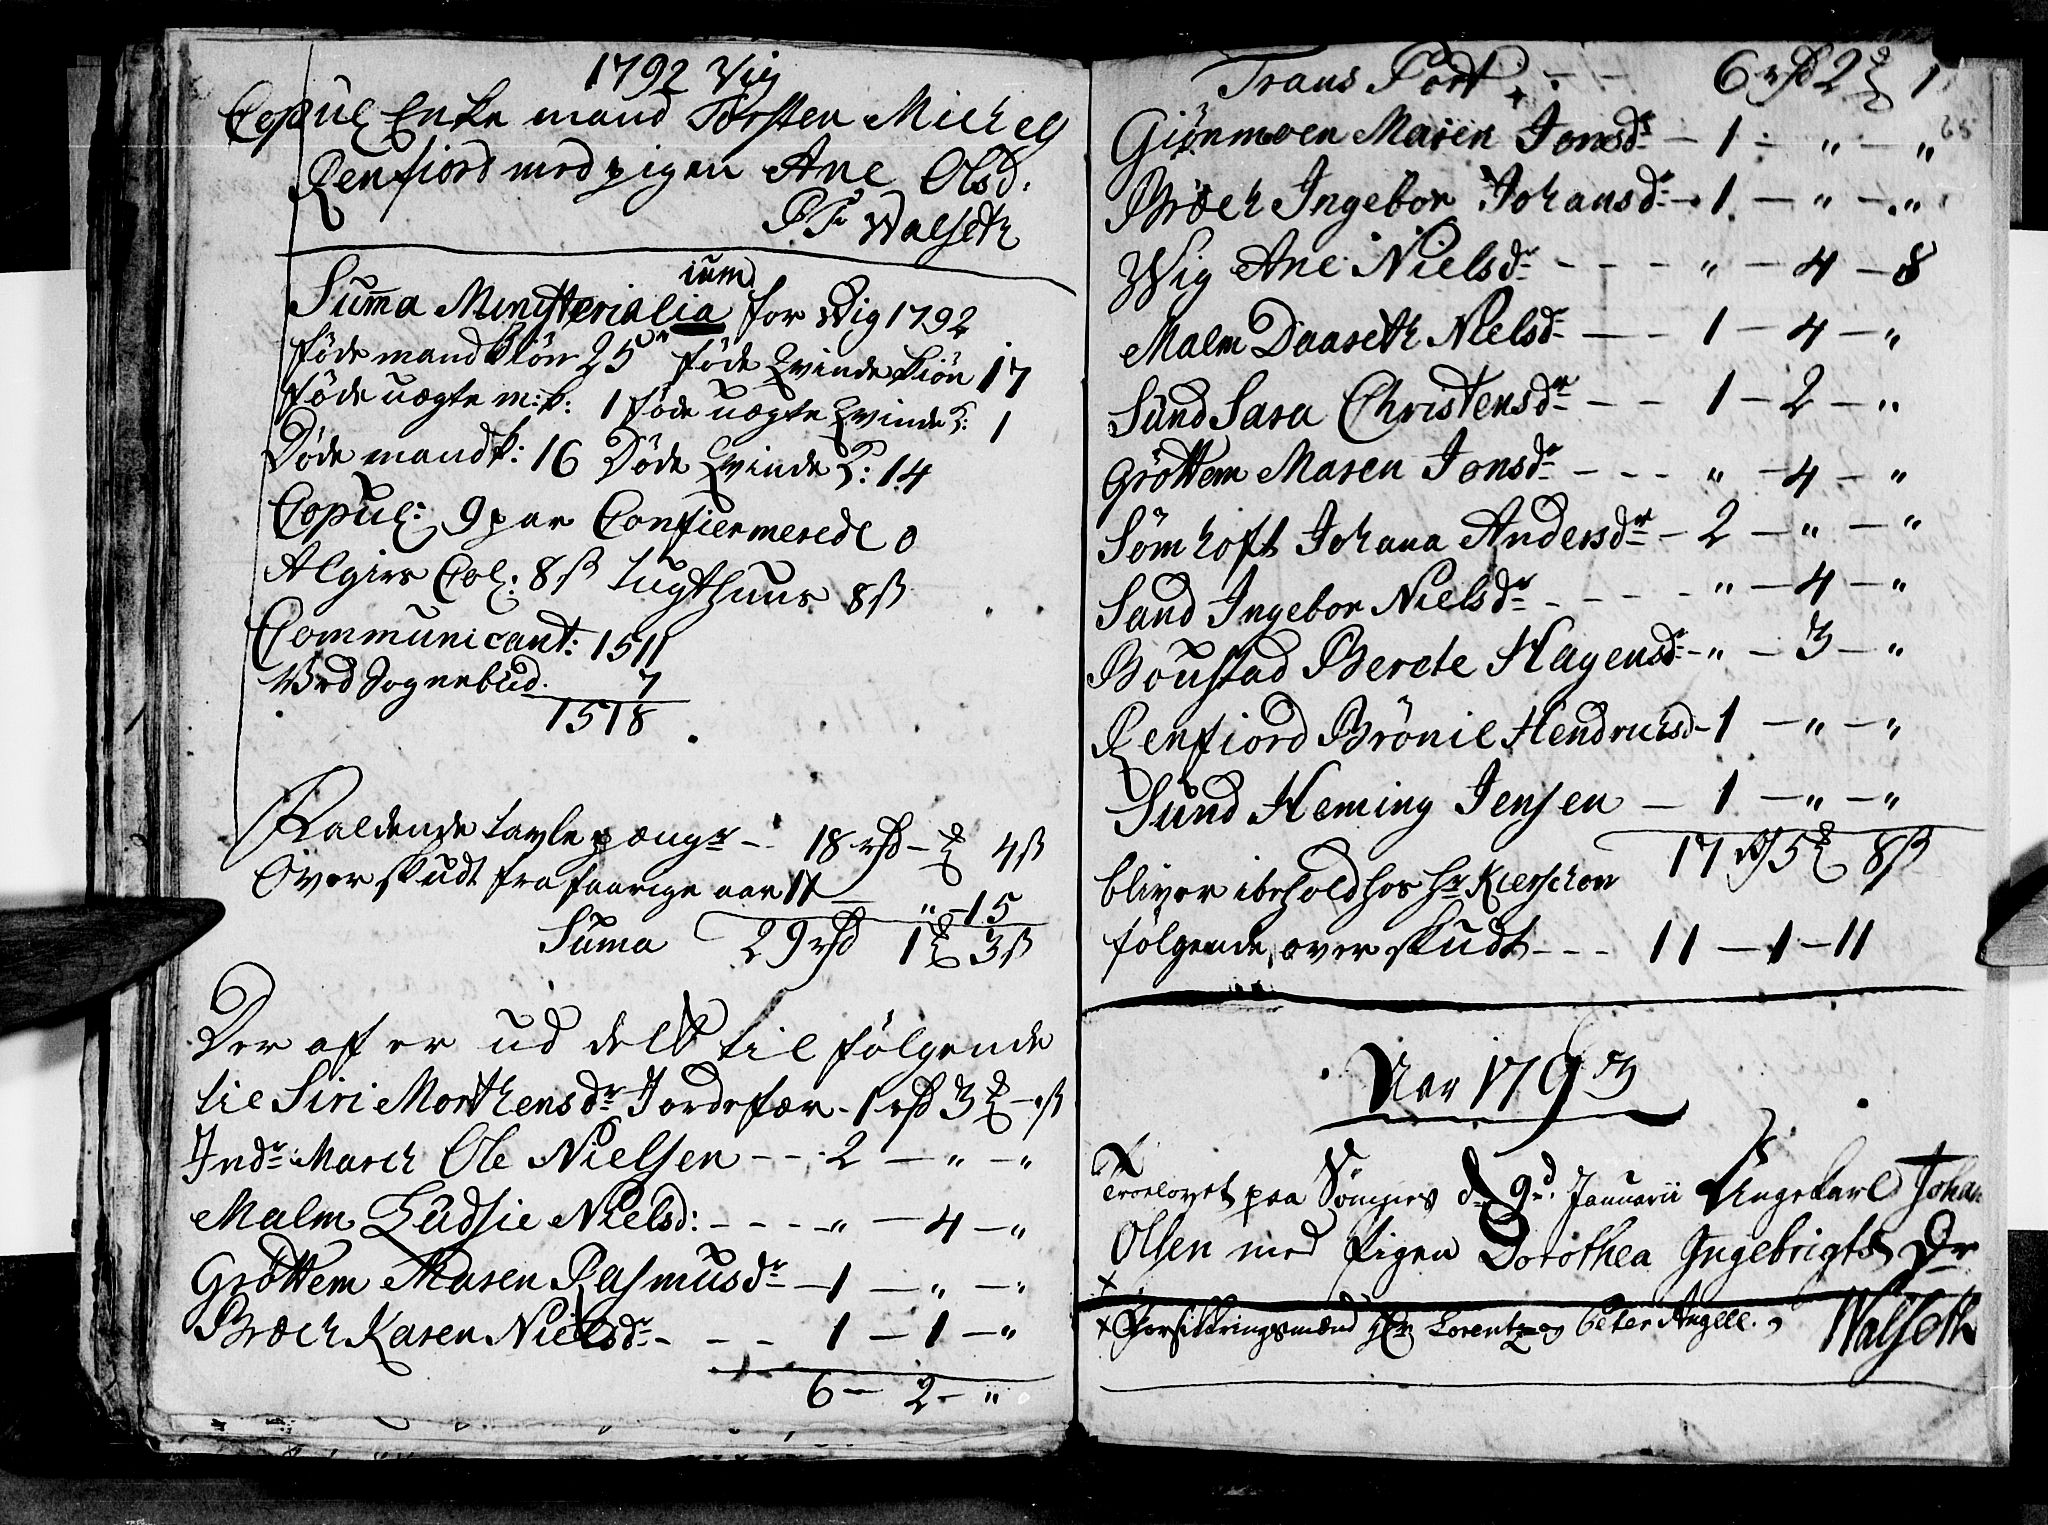 1792 Vig
Copul Enke mand Torsten Michels
Renfiord med pigen Ane Olsd.
Walseth
ium
Suma Ministerialia for Wig 1792
føde mandkiön 25 føde Qvinde kiön 17
føde uægte m:k: 1 føde uægte Qvinde K: 1
Døde mandk: 16 Døde Qvinde K: 14
Copul: 9 par Confiermerede 0
Algirs Col: 8 ß tugthuus 8 ß
Communicant: 1511
Ved Sognebud. 7
1518
faldende tavle pæng - 18 rd - 4 ß
Over skudt fra faarige aar 11 - " - 15
Suma 29 rd 1 3 ß
Der af er ud delt til følgende
til Siri Morthensdr Jordefær - 1 rd 3 - " ß
Indr: March Ole Nielsen - - 2 - " - "
Malm Ludsie Nielsd: - - - " - 4 - "
Gröttem Maren Rasmusdr - 1 - " - "
Bræch Karen Nielsdr - - - 1 - 1 - "
6 - 2 - "
Trans Port - - 6 rd 2 1
65
Giönmoen Maren Jonsdr - 1 - " - "
Bræch Ingebor Johansdr - 1 - " - "
Wig Ane Nielsdr - - - " - 4 - 8
Malm Daareth Nielsdr - - 1 - 4 - "
Sund Sara Christensdr - - 1 - 2 - "
Gröttem Maren Jonsdr - - - " - 4 - "
Sömhoft Johana Andersdr - 2 - " - "
Sand Ingebor Nielsdr - - - - " - 4 - "
Boustad Berete Hagensdr - " - 3 - "
Renfiord Brönil Hendrichsd - 1 - " - "
Sund Heming Jensen - 1 - " - "
17 rd 5 8 ß
bliver i behold hos Hr Kierschou
følgende over skudt - - - 11 - 1 - 11
Aar 1793
Troelovet paa d. 9d. Januarii Ungekarl Johan
Olsen med Pigen Dorothea Ingebrigts Dr
x
x Forsikringsmænd Hr. Lorentz og Peter Angell.
Walseth